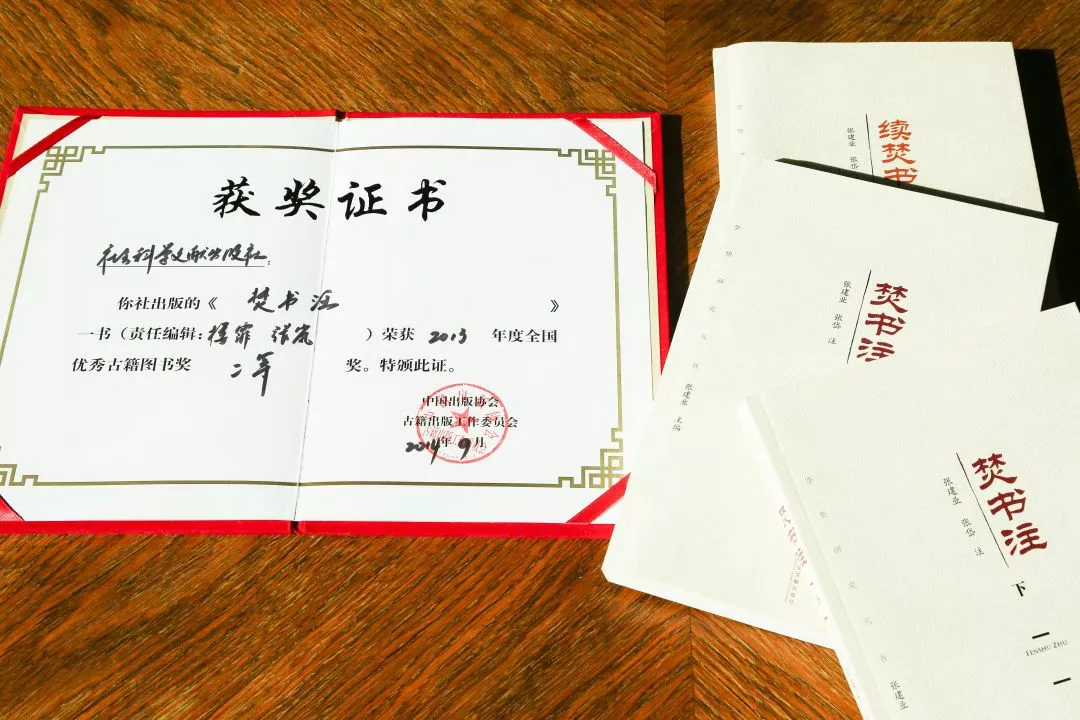 获奖证书
社会科学文献出版社:
你社出版的《 焚书注 》
一书(责任编辑: 张岚 )荣获 2013 年度全国
优秀古籍图书奖 二等 奖。特颁此证。
中国出版协会
古籍出版工作委员会
2014年9月
续焚书
张建业 张岱
焚书注
张建业 张岱 注
李贽研究丛书 张建业 主编
焚书注
张建业 张岱 注
下
FENSHU ZHU
李贽研究丛书 张建业